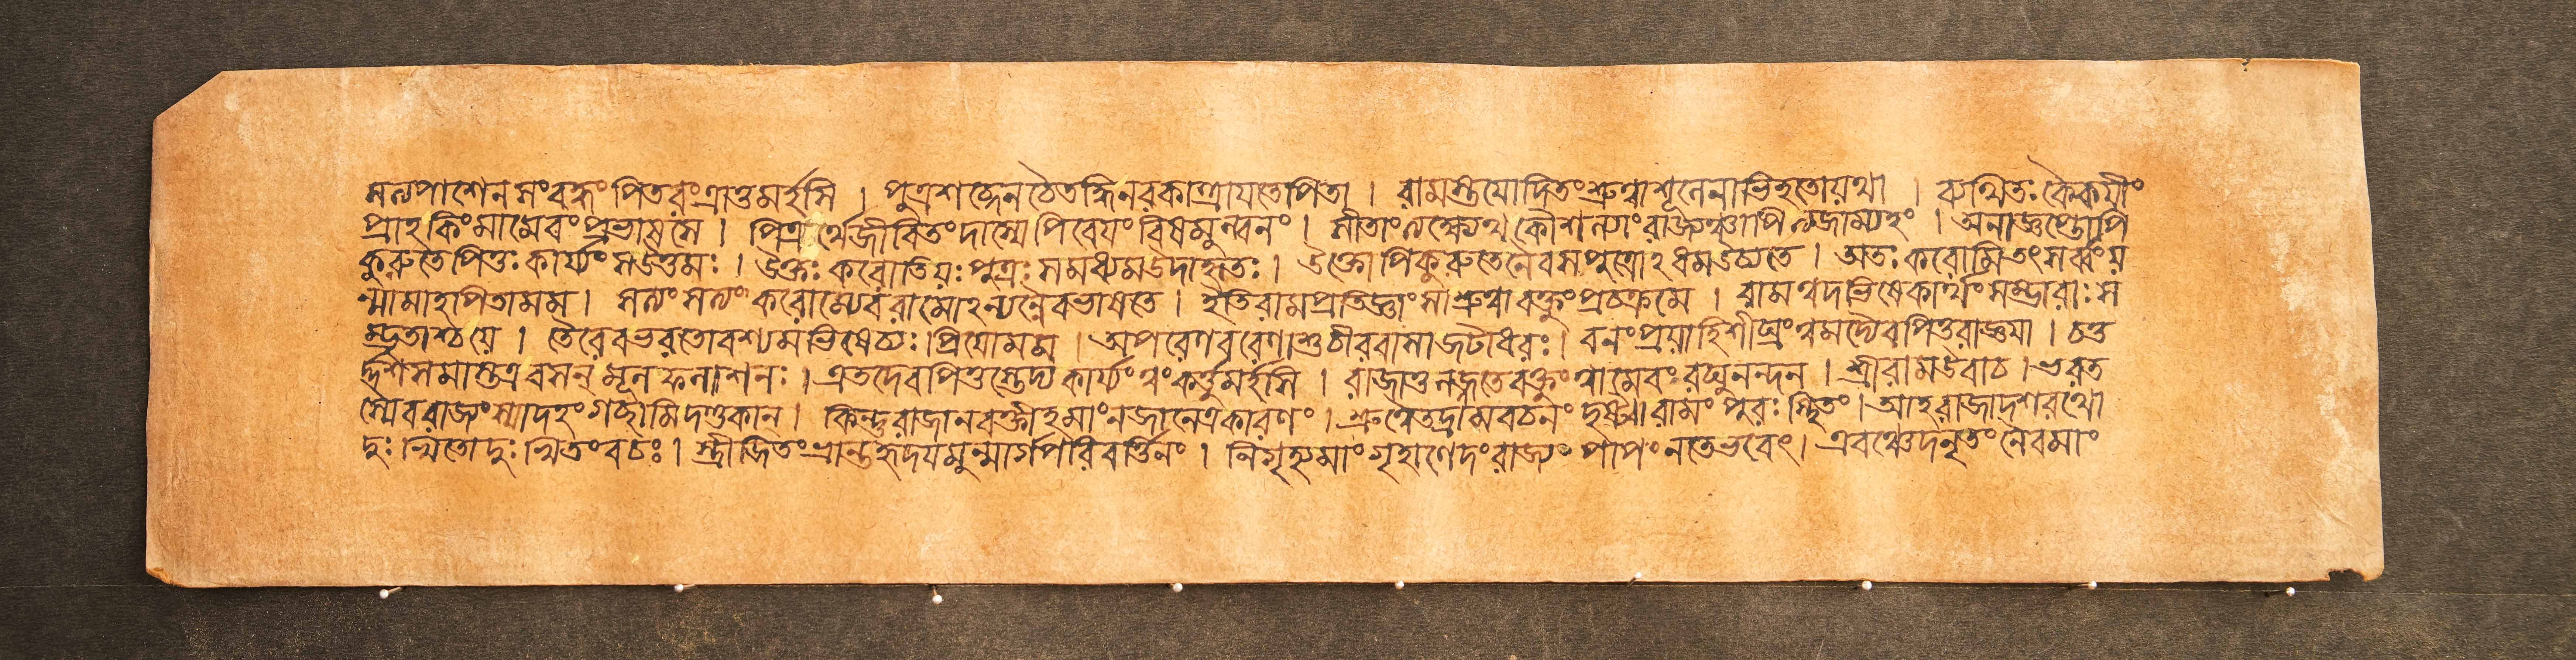 সত্যপাশেন সংবদ্ধং পিতরং ত্রাতুমর্হসি । পুত্রশব্দেন চৈতদ্ধি নরকাত্ত্রায়তে পিতা । রামস্তয়োদিতং শ্রুত্বা শূলেনাভিহতো যথা । ব্যথিতঃ কৈকয়ীং
প্রাহ কিং মামেবং প্রভাষসে । পিত্রর্থে জীবিতং দাস্যে পিবেয়ং বিষমুল্বনং । সীতাং ত্যক্ষ্যেথ কৌশল্যাং রাজ্যঞ্চাপি ত্যজাম্যহং । অনাজ্ঞপ্তোপি
কুরুতে পিতুঃ কার্য্যং স উত্তমঃ । উক্তঃ করোতি যঃ পুত্রঃ স মধ্যম উদাহৃতঃ । উক্তোপি কুরুতে নৈব স পুত্রোঽধম উচ্যতে । অতঃ করোমি তৎ সর্ব্বং য
ন্মামাহ পিতা মম । সত্যং সত্যং করোম্যেব রামোঽন্যন্নৈব ভাষতে । ইতি রামপ্রতিজ্ঞাং সা শ্রুত্বা বক্তুং প্রচক্রমে । রাম ত্বদভিষেকার্থং সম্ভারাঃ স
ম্ভৃতাশ্চ যে । তৈরেব ভরতোবশ্যমভিষেচ্যঃ প্রিয়ো মম । অপরেণ বরেণাশু চীরবাসা জটাধরঃ । বনং প্রয়াহি শীঘ্রং ত্বমদ্যৈব পিতুরাজ্ঞয়া । চতু
র্দ্দশ সমাস্তত্র বসন্ মূলফলাশনঃ । এতদেব পিতুস্তেদ্য কার্য্যং ত্বং কর্ত্তুমর্হসি । রাজা তু লজ্জতে বক্তুং ত্বামেবং রঘুনন্দন । শ্রীরাম উবাচ । ভরত
স্যৈব রাজ্যং স্যাদহং গচ্ছামি দণ্ডকান্ । কিন্তু রাজা ন বক্তীহ মাং ন জানেত্র কারণং । শ্রুত্বৈতদ্রামবচনং দৃষ্ট্বা রামং পুরঃ স্থিতং । আহ রাজা দশরথো
দুঃখিতো দুঃখিতং বচঃ । স্ত্রীজিতং ভ্রান্তহৃদয়মুন্মার্গপরিবর্ত্তিনং । নিগৃহ্য মাং গৃহাণেদং রাজ্যং পাপং ন তে ভবেৎ । এবঞ্চেদনৃতং নৈব মাং